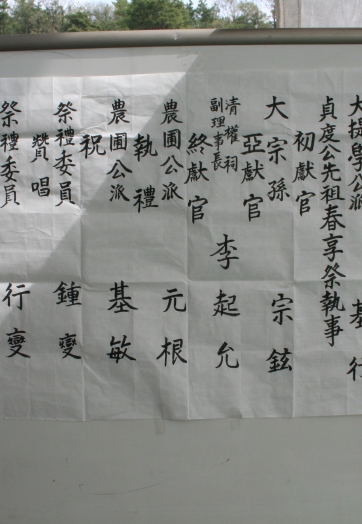 大提學公派 基行
貞度公先祖春享祭執事
初獻官
大宗孫 宗鉉
亞獻官
清權祠
副理事長 李起允
終獻官
農圃公派 元根
執禮
農圃公派 基敏
祝
祭禮委員 鍾燮
贊唱
祭禮委員 行燮